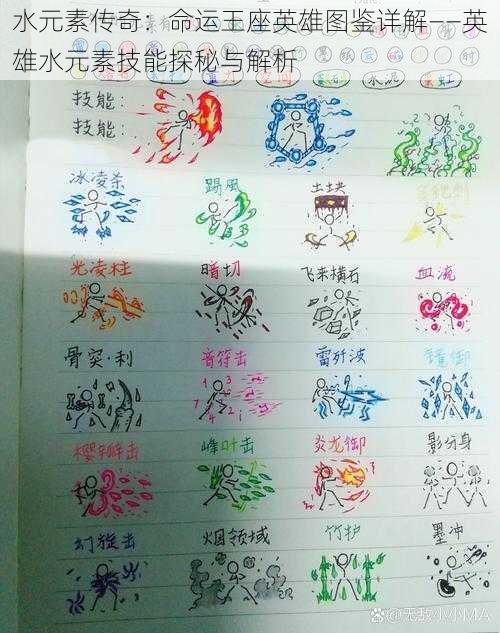 水元素传奇：命运王座英雄图鉴详解——英
雄水元素技能探秘与解析
水泥
霓虹
技能：
技能：
冰凌杀
踢風
土块
光凌柱
暗切
飞来横石
血流
骨突·利
音符击
雷歼波
樱钟击
峰叶击
炎龙御
影分身
幻旋击
烟领域
竹护
墨冲
百家号@无敌小小MA